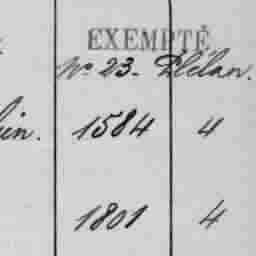 EXEMPTÉ
No 23. Plélan.
in. 1584 4
1801 4